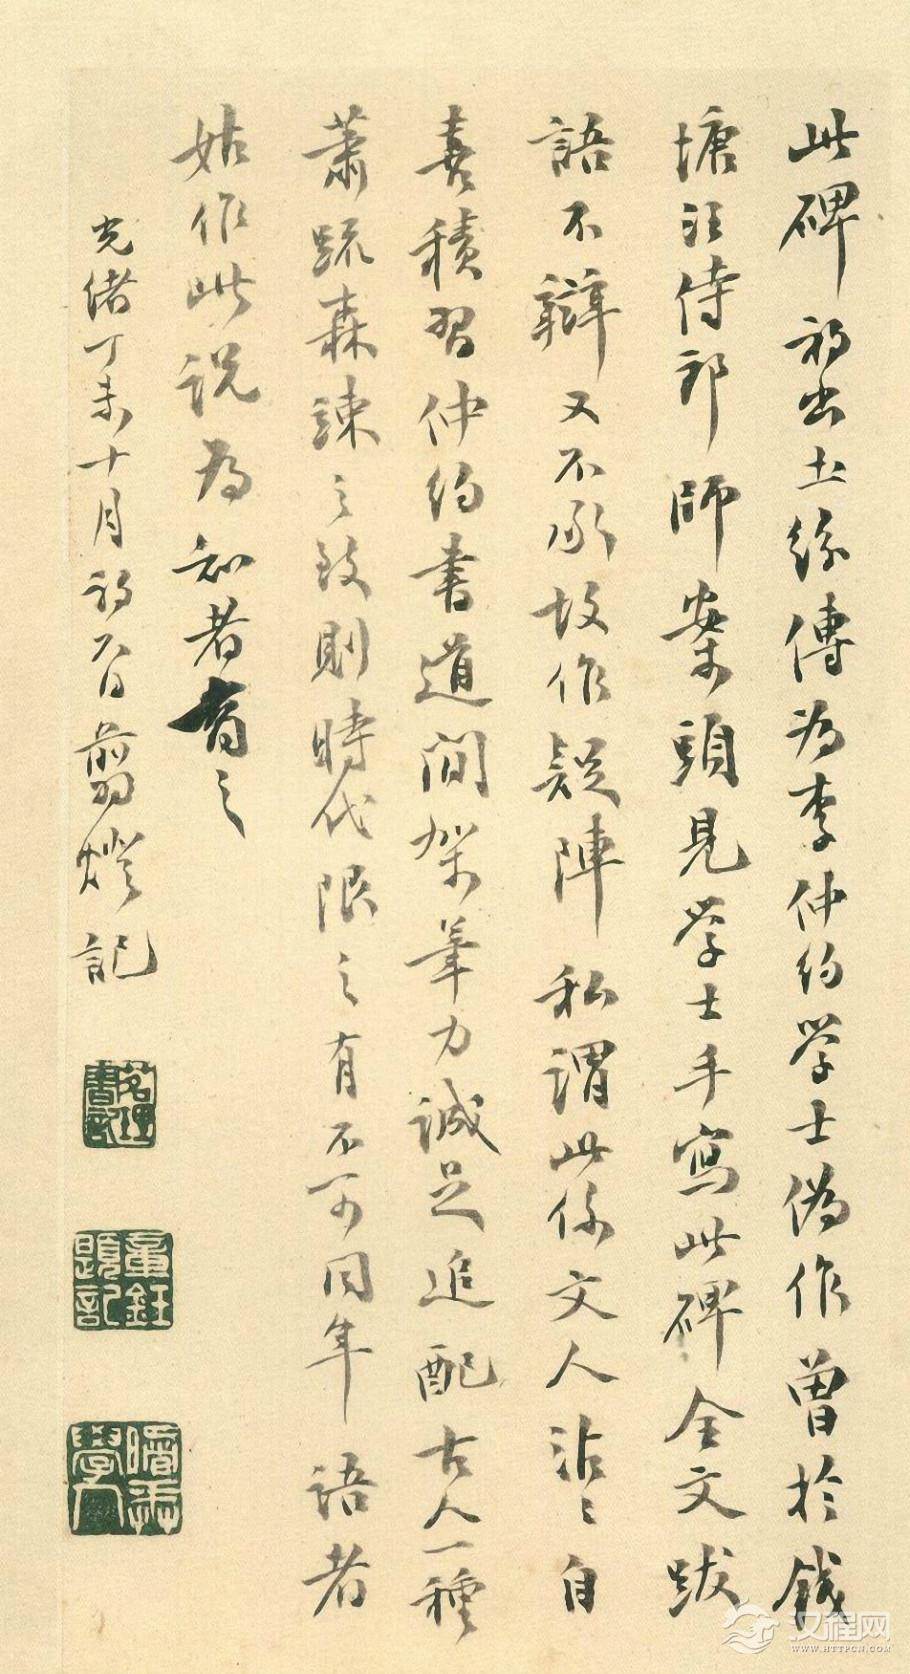 此碑初出土縁傳為李仲約學士偽作曽於錢
塘汪侍郎師案頭見學士手寫此碑全文跋
語不辯又不承故作疑陣私謂此係文人沾〻自
喜積習仲約書道間架筆力誠足追配古人一種
蕭疏森諫之致則時代限之有不可同年語者
姑作此説為知者省之
光緒丁未十月初六日翦燈記
茗理書記
童鈺題記
汉程网
WWW.HTTPCN.COM